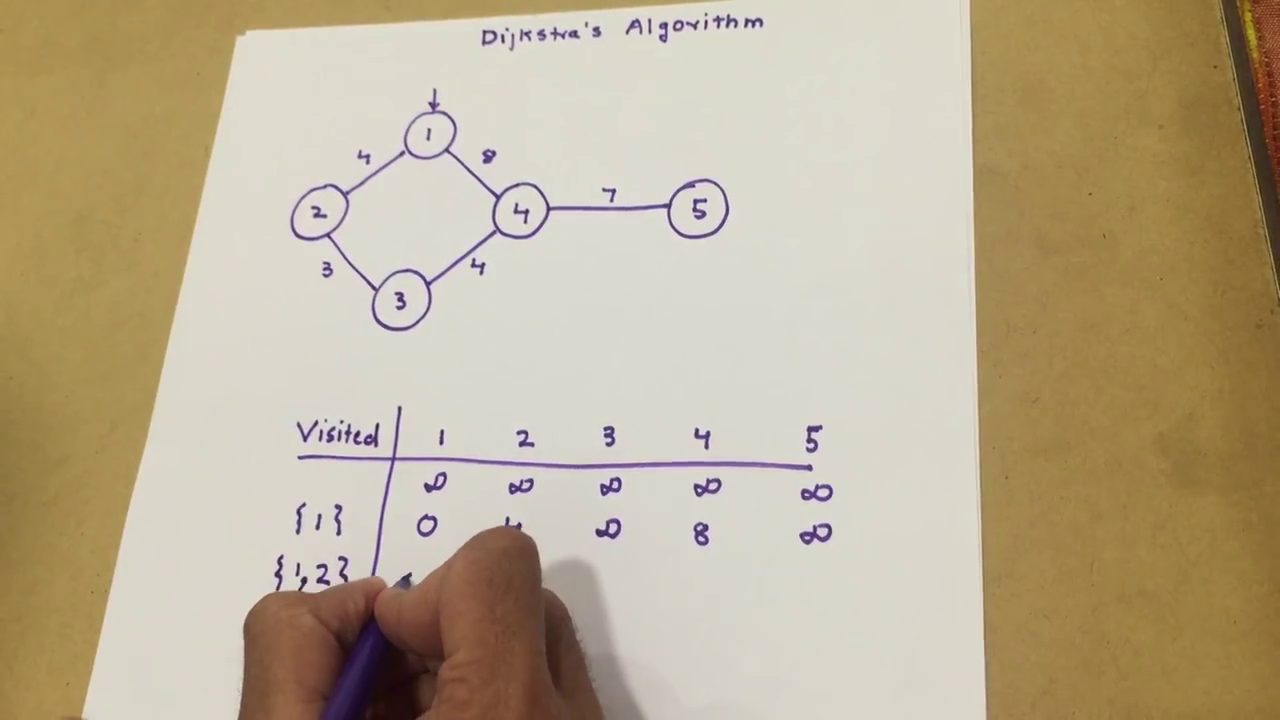 Dijkstra's Algorithm
1
4 8
2 4 7 5
3 4
3
Visited 1 2 3 4 5
∞ ∞ ∞ ∞ ∞
{1} 0 ∞ 8 ∞
{1,2}